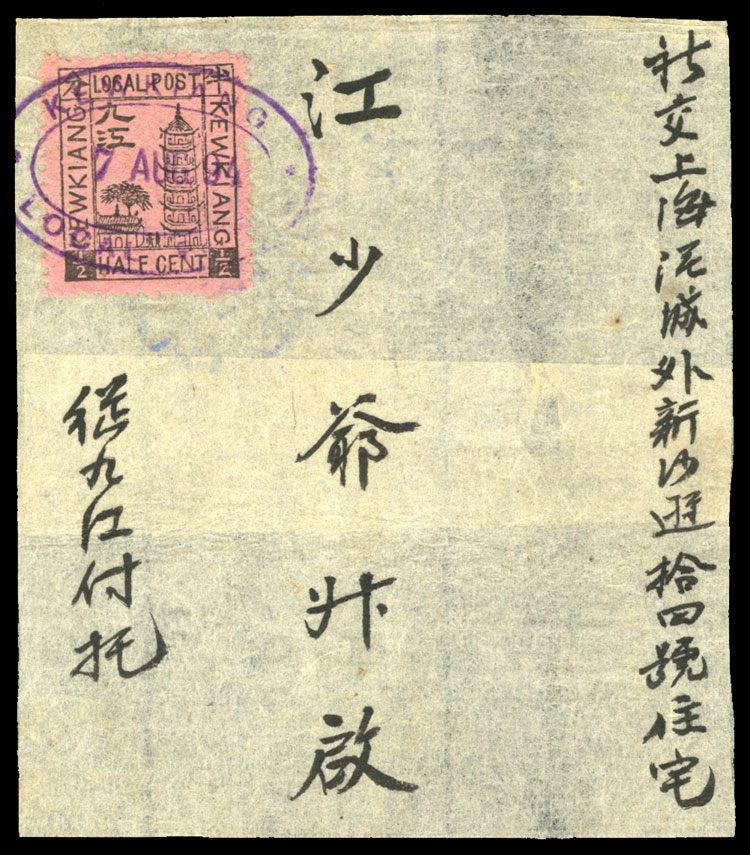 社交上海泥城外新沙遜拾四號住宅
江少爺升啟
從九江付托
LOCAL POST
半
分
九江
KEWKIANG
KEWKIANG
1/2
HALF CENT
1/2
KEWKIANG
7 AUG 94
LOCAL